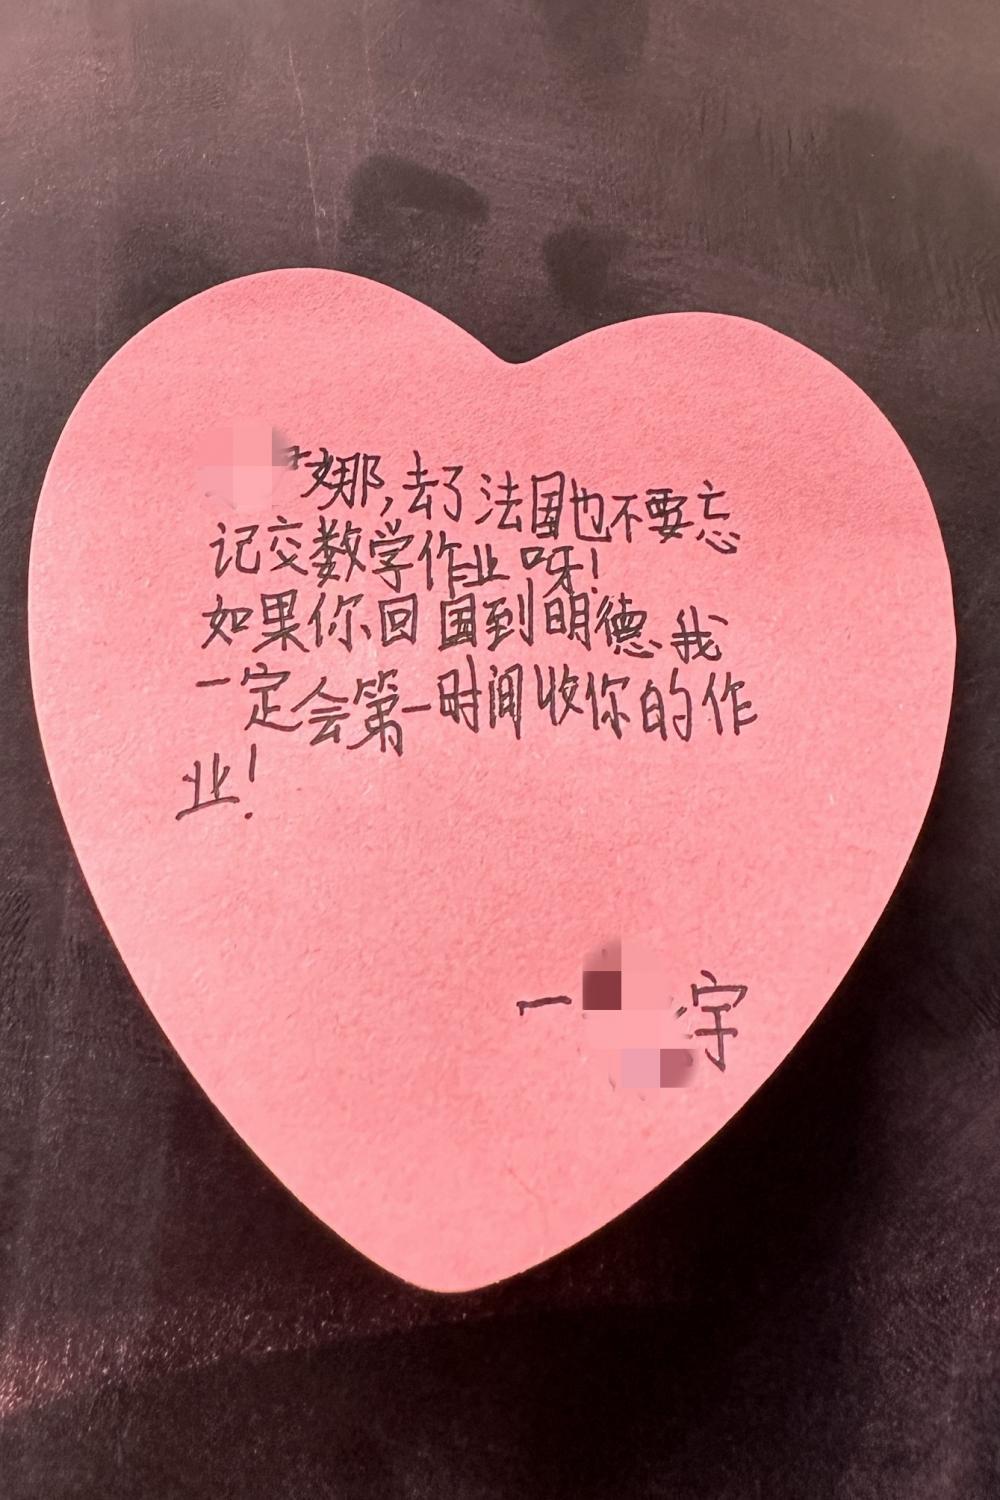 娜,去了法国也不要忘
记交数学作业呀!
如果你回国到明德我
一定会第一时间收你的作
业!
一 宇